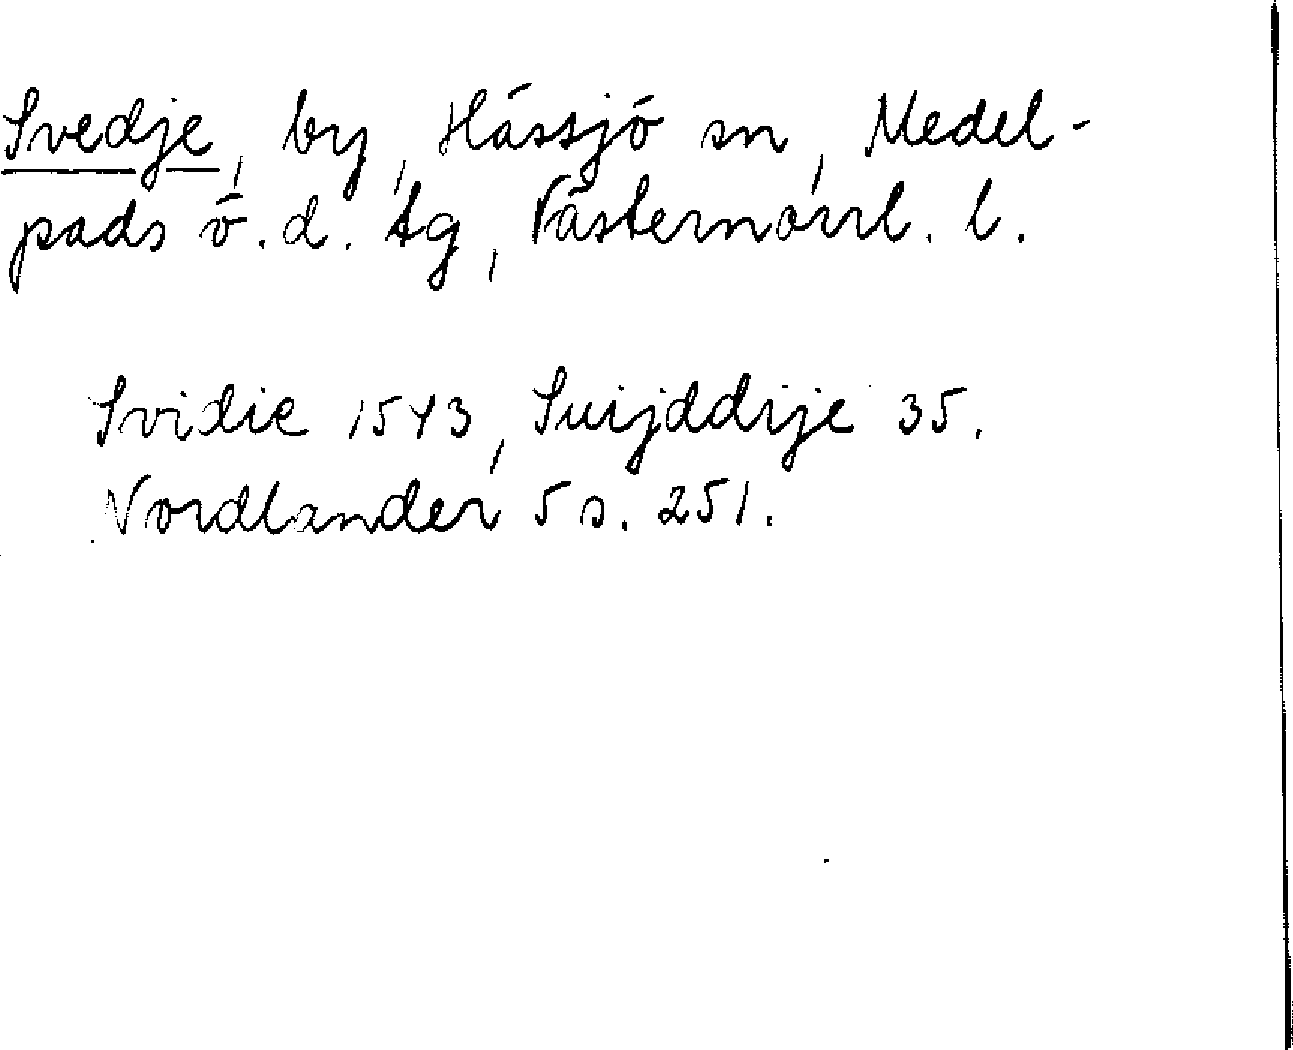 Svedje, by, Hässjö sn, Medel-
pads ö. d. tg, Västernorrl. l.
Svidie 1543, Suijddije 35.
Nordlander 5 s. 251.